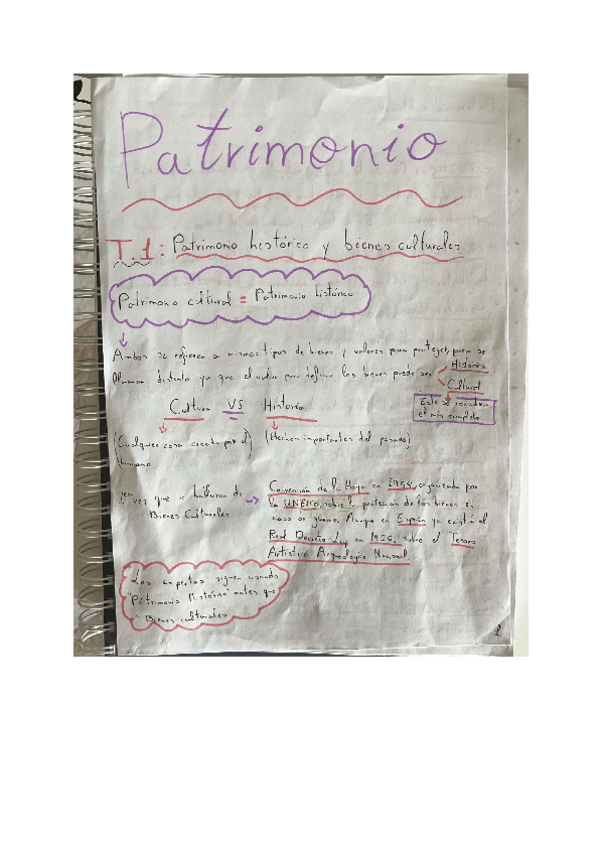 Patrimonio
T.1: Patrimonio histórico y bienes culturales
Patrimonio cultural = Patrimonio histórico
Ambos se refieren a mismos tipos de bienes y valores para proteger, pero se
llaman distinto ya que el valor para definir los bienes puede ser
Histórico
Cultural
Este se considera
el más completo
Cultura VS Historia
(Cualquier cosa creada por el)
humano
(Hechos importantes del pasado)
1era vez que se hablaron de
Bienes Culturales
Convención de la Haya en 1954, organizada por
la UNESCO, sobre la protección de los bienes en
caso de guerra. Aunque en España ya existía el
Real Decreto-Ley en 1926, sobre el Tesoro
Artístico Arqueológico Nacional.
Los expertos siguen usando
"Patrimonio Histórico" antes que
"Bienes culturales
1